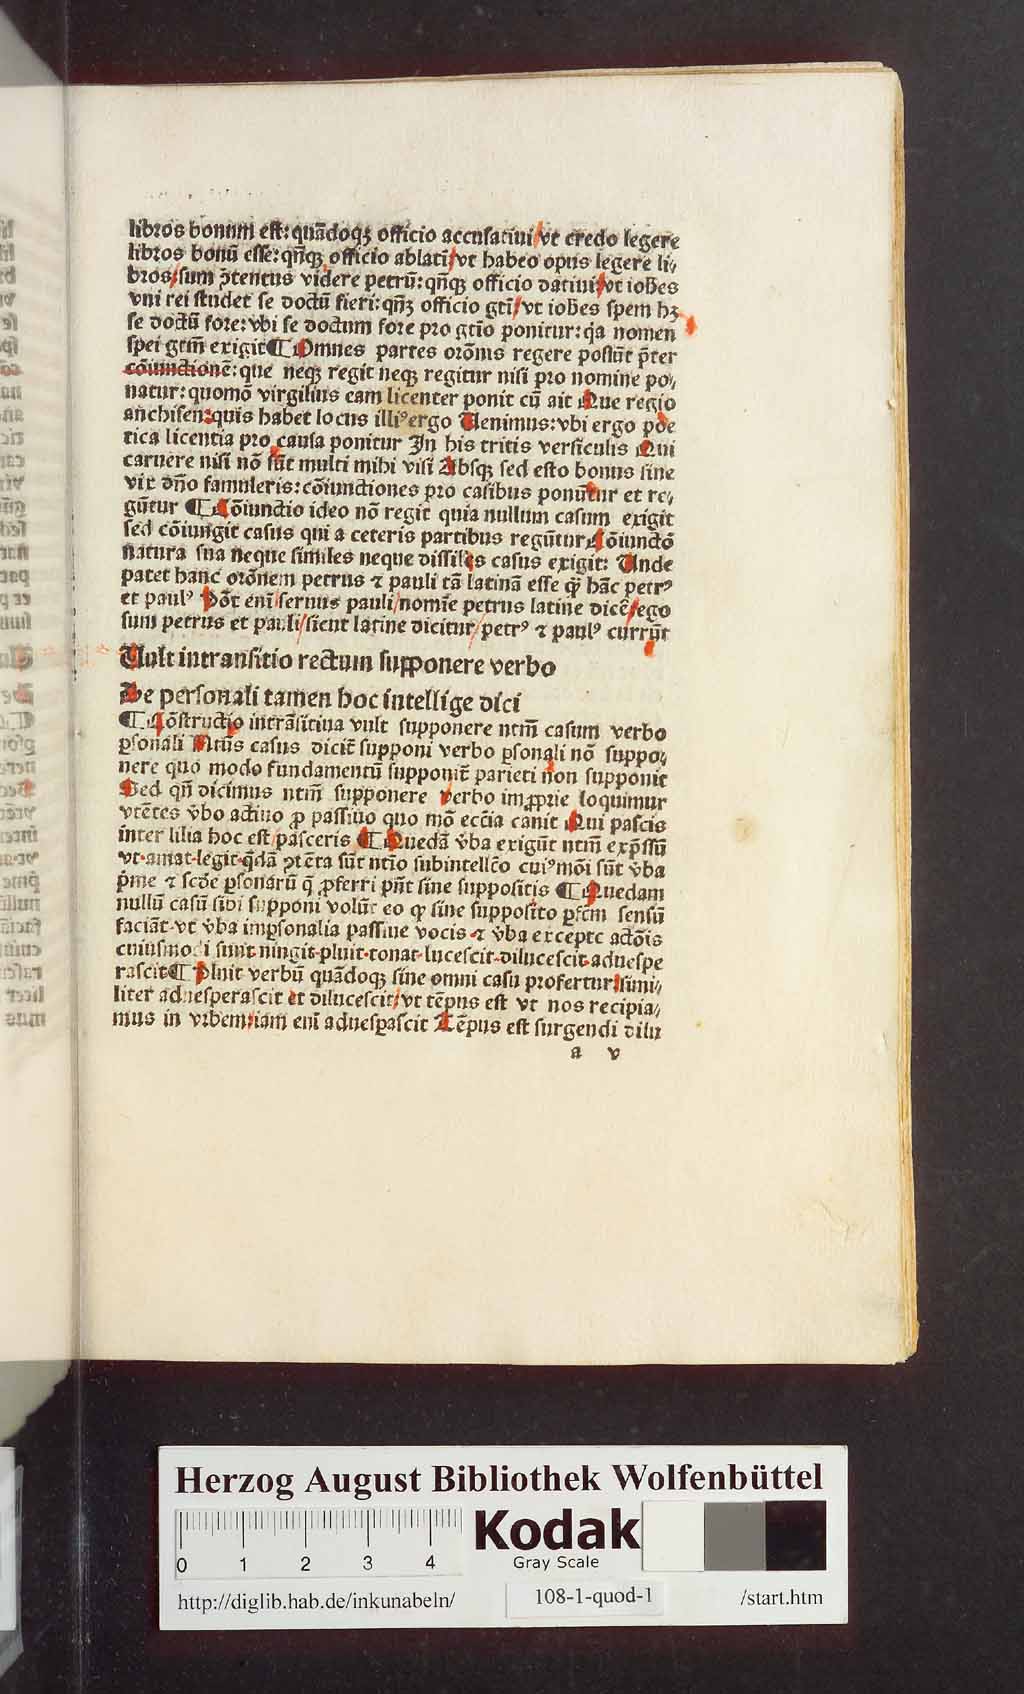 libros bonum est: quādoqꝫ officio accusatiui/vt credo legere
libros bonū esse: qñqꝫ officio ablati/vt habeo opus legere li⸗
bros/sum ꝯtentus videre petrū: qñqꝫ officio datiui/vt iohēs
vni rei studet se doctū fieri: qñꝫ officio gtī/vt iohēs spem hꝫ
se doctū fore: vbi se doctum fore pro gtīo ponitur: q̄a nomen
spei gtm̄ exigit ¶ Omnes partes orōnis regere possūt p̄ter
cōiunctionē: que neqꝫ regit neqꝫ regitur nisi pro nomine po⸗
natur: quomō virgilius eam licenter ponit cū ait Que regio
anchisen: quis habet locus illiꝰ ergo Uenimus: vbi ergo poe
tica licentia pro causa ponitur In his tritis versiculis Qui
caruere nisi nō sūt multi mihi visi Absqꝫ sed esto bonus sine
vir dño famuleris: cōiunctiones pro casibus ponūtur et re⸗
gūtur ¶ Cōiunctio ideo nō regit quia nullum casum exigit
sed cōiungit casus qui a ceteris partibus regūtur Cōiunctō
natura sua neque similes neque dissiłes casus exigit: Unde
patet hanc orōnem petrus ⁊ pauli tā latinā esse qꝫ hāc petrꝰ
et paulꝰ Pōt eni/seruus pauli/nomīe petrus latine dicē/ego
sum petrus et pauli/sicut latine dicitur/petrꝰ ⁊ paulꝰ currūt
Uult intransitio rectum supponere verbo
De personali tamen hoc intellige dici
¶ Cōstructio intrāsitiua vult supponere ntm̄ casum verbo
ꝑsonali Ntūs casus dicit̄ supponi verbo ꝑsonali nō suppo⸗
nere quo modo fundamentū supponit̄ parieti non supponit
Sed qñ dicimus ntm̄ supponere verbo imꝓprie loquimur
vtētes v̄bo actiuo ꝓ passiuo quo mō eccīa canit Qui pascis
inter lilia hoc est/pasceris ¶ Quedā v̄ba exigūt ntm̄ exp̄ssū
vt·amat·legit·q̄dā ꝯtēta sūt ntīo subintellc̄o cuiꝰmōi sūt v̄ba
p̄me ⁊ scd̄e ꝑsonarū q̄ ꝓferri pn̄t sine suppositis ¶ Quedam
nullū casū sibi supponi volūt eo ꝙ sine supposito ꝑfcm̄ sensū
faciāt·vt v̄ba imꝑsonalia passiue vocis ⁊ v̄ba excepte actōis
cuiusmodi sunt ningit·pluit·tonat·lucescit·dilucescit·aduespe
rascit ¶ Pluit verbū quādoqꝫ sine omni casu profertur/simi⸗
liter aduesperascit et dilucescit/vt tēpus est vt nos recipia⸗
mus in vrbem/iam eni aduesꝑascit Tēpus est surgendi dilu
a v
Herzog August Bibliothek Wolfenbüttel
0 1 2 3 4
Kodak
Gray Scale
http://diglib.hab.de/inkunabeln/ 108-1-quod-1 /start.htm